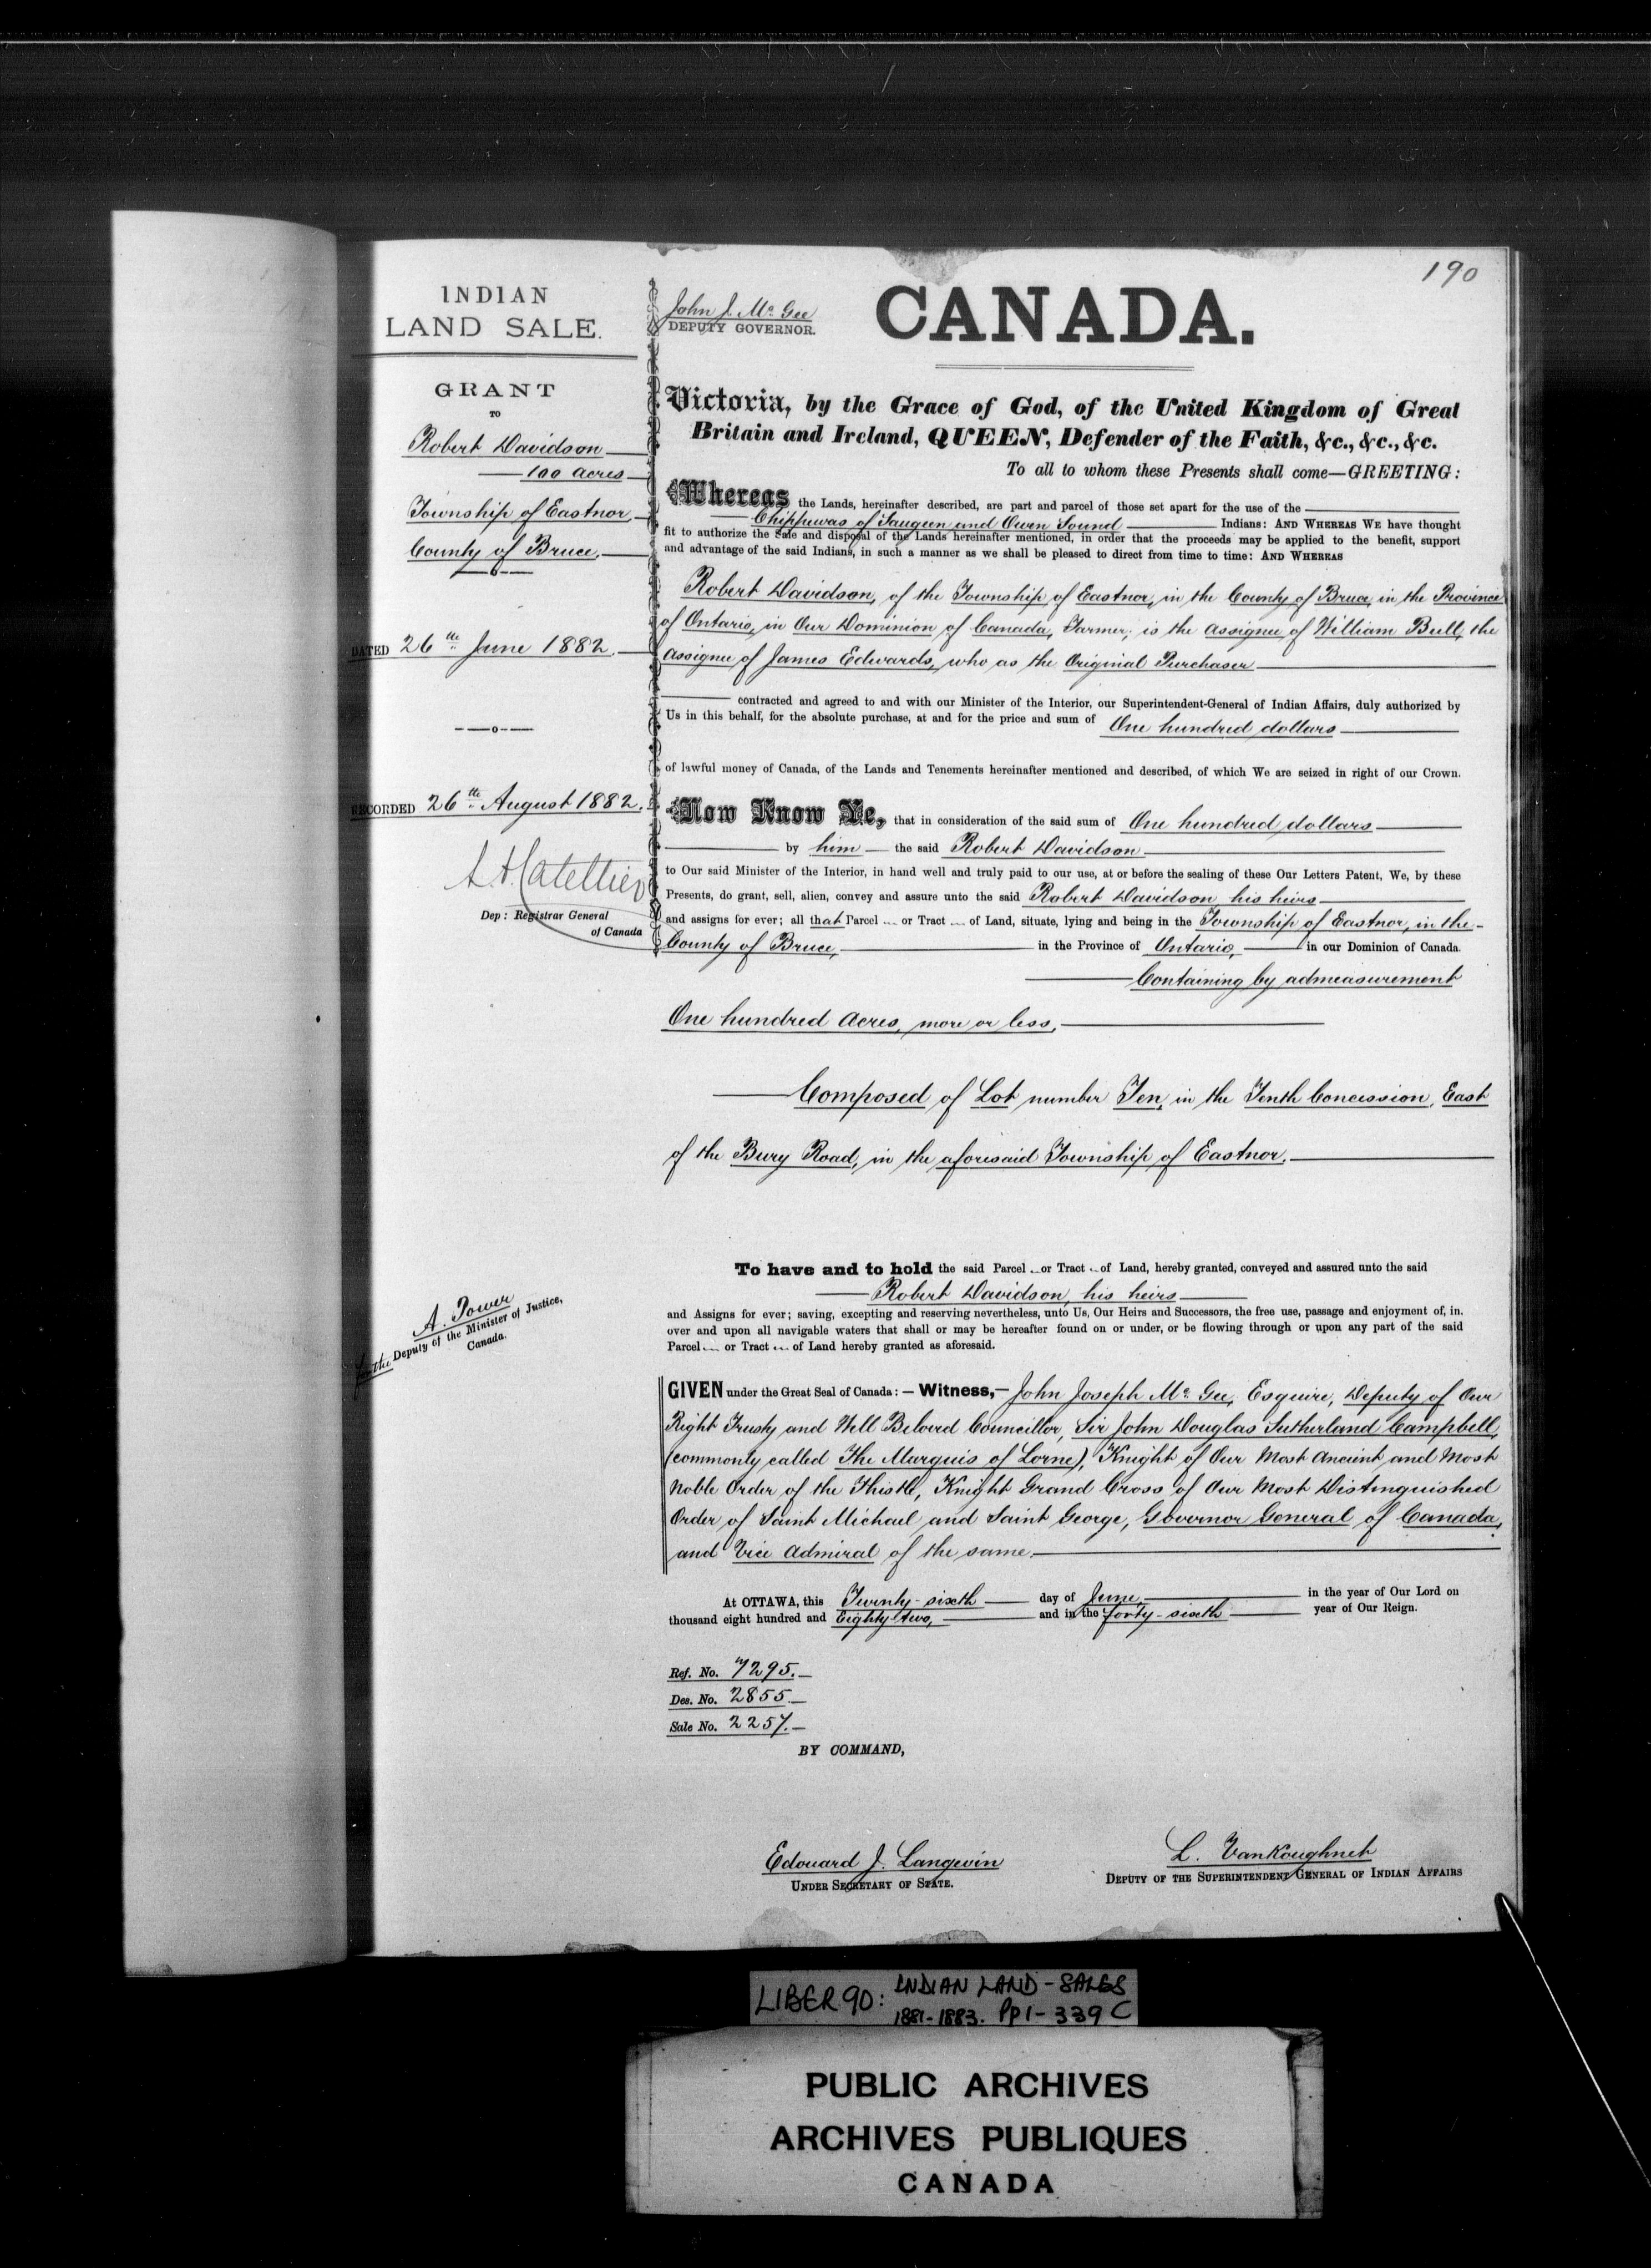 190
INDIAN
LAND SALE.
GRANT
TO
Robert Davidson
100 Acres
Township of Eastnor,
County of Bruce.
DATED 26th June 1882.
RECORDED 26th August 1882.
Dep: Registrar General
of Canada
A. Power
for the Deputy of the Minister of Justice,
Canada.
John J. McGee
DEPUTY GOVERNOR.
CANADA.
Victoria, by the Grace of God, of the United Kingdom of Great
Britain and Ireland, QUEEN, Defender of the Faith, &c., &c., &c.
To all to whom these Presents shall come—GREETING:
Whereas the Lands, hereinafter described, are part and parcel of those set apart for the use of the
Chippewas of Saugeen and Owen Sound Indians: AND WHEREAS WE have thought
fit to authorize the Sale and disposal of the Lands hereinafter mentioned, in order that the proceeds may be applied to the benefit, support
and advantage of the said Indians, in such a manner as we shall be pleased to direct from time to time: AND WHEREAS
Robert Davidson, of the Township of Eastnor, in the County of Bruce, in the Province
of Ontario, in Our Dominion of Canada, Farmer, is the Assignee of William Bull, the
Assignee of James Edwards, who as the Original Purchaser
contracted and agreed to and with our Minister of the Interior, our Superintendent-General of Indian Affairs, duly authorized by
Us in this behalf, for the absolute purchase, at and for the price and sum of One hundred dollars
of lawful money of Canada, of the Lands and Tenements hereinafter mentioned and described, of which We are seized in right of our Crown.
Now Know Ye, that in consideration of the said sum of One hundred dollars
by him the said Robert Davidson
to Our said Minister of the Interior, in hand well and truly paid to our use, at or before the sealing of these Our Letters Patent, We, by these
Presents, do grant, sell, alien, convey and assure unto the said Robert Davidson, his heirs
and assigns for ever; all that Parcel or Tract of Land, situate, lying and being in the Township of Eastnor, in the
County of Bruce, in the Province of Ontario, in our Dominion of Canada.
Containing by admeasurement
One hundred Acres, more or less,
Composed of Lot number Ten, in the Tenth Concession, East
of the Bury Road, in the aforesaid Township of Eastnor.
To have and to hold the said Parcel or Tract of Land, hereby granted, conveyed and assured unto the said
Robert Davidson, his heirs
and Assigns for ever; saving, excepting and reserving nevertheless, unto Us, Our Heirs and Successors, the free use, passage and enjoyment of, in.
over and upon all navigable waters that shall or may be hereafter found on or under, or be flowing through or upon any part of the said
Parcel or Tract of Land hereby granted as aforesaid.
GIVEN under the Great Seal of Canada:—Witness,—John Joseph McGee, Esquire, Deputy of Our
Right Trusty and Well Beloved Councillor, Sir John Douglas Sutherland Campbell,
(commonly called The Marquis of Lorne), Knight of Our Most Ancient and Most
Noble Order of the Thistle, Knight Grand Cross of Our Most Distinguished
Order of Saint Michael and Saint George, Governor General of Canada,
and Vice Admiral of the same.
At OTTAWA, this Twenty-sixth day of June, in the year of Our Lord on
thousand eight hundred and Eighty-two, and in the forty-sixth year of Our Reign.
Ref. No. 7295.
Des. No. 2855.
Sale No. 2257.
BY COMMAND,
Edouard J. Langevin
UNDER SECRETARY OF STATE.
L. VanKoughnet
DEPUTY OF THE SUPERINTENDENT GENERAL OF INDIAN AFFAIRS
LIBER 90: INDIAN LAND-SALES
1881-1883. Pp 1-339 C
PUBLIC ARCHIVES
ARCHIVES PUBLIQUES
CANADA